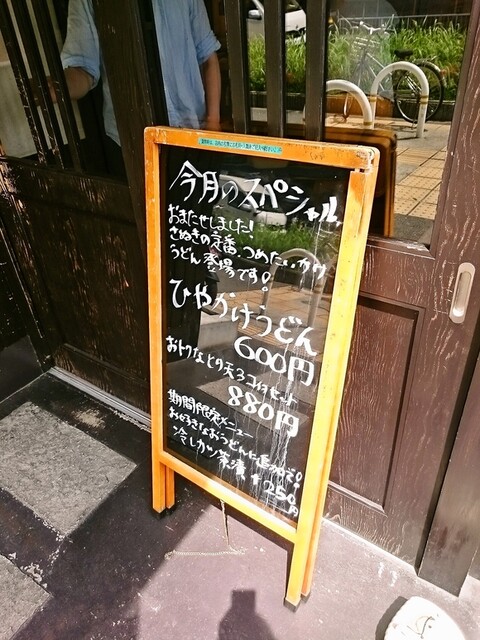 今月のスペシャル
おまたせしました!
さぬきの定番、つめたいかけ
うどん登場です!
ひやかけうどん
600円
おトクなとり天3コ付セット
880円
期間限定メニュー
お好きなおうどんに追加で!
冷しカツ茶漬 ¥250円